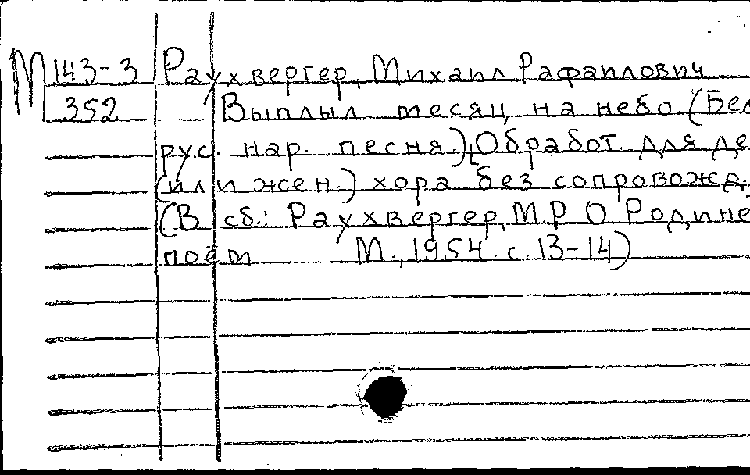 М 143-3 Раухвергер, Михаил Рафаилович
352 Выплыл месяц на небо (Бел
рус. нар. песня.) Обработ. для де
(или жен.) хора без сопровожд.
(В сб.: Раухвергер, М.Р. О Родине
поём М., 1954. с. 13-14)